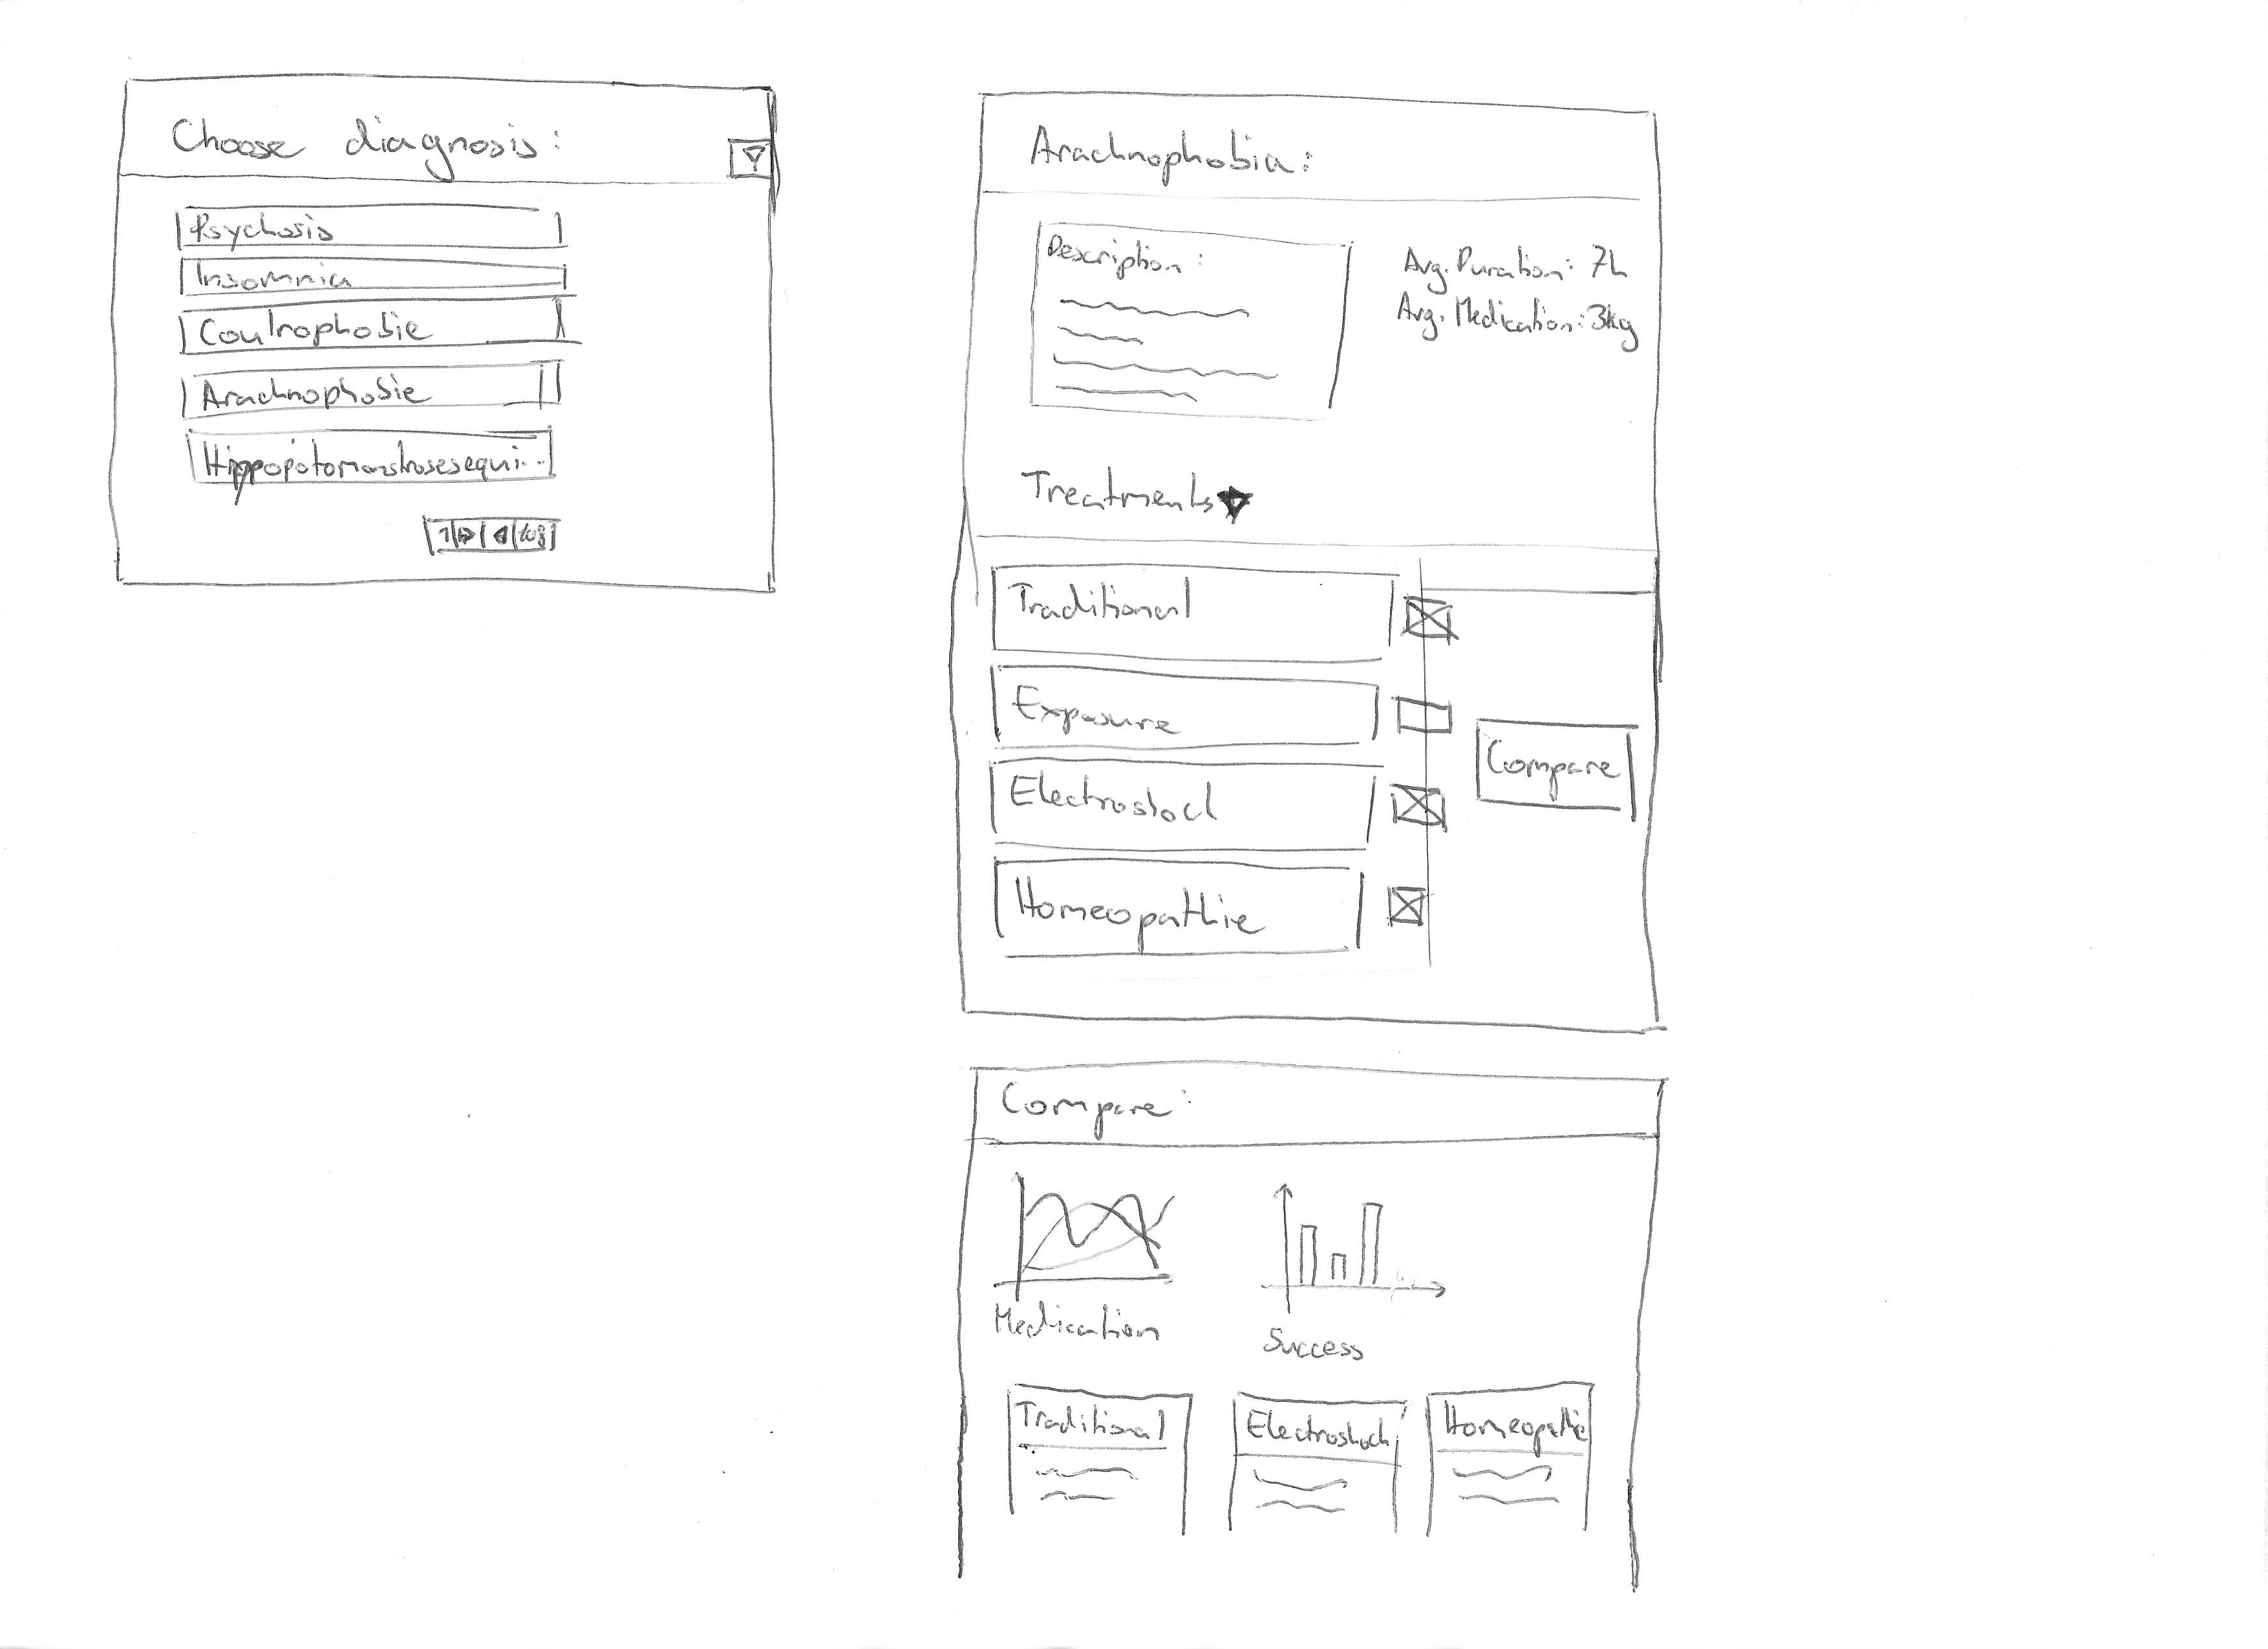 Choose diagnosis:
Psychosis
Insomnia
Coulrophobie
Arachnophobie
Hippopotomonstrosesequi...
Arachnophobia:
Description:
Avg. Duration: 7h
Avg. Medication: 3kg
Treatments
Traditional
Exposure
Electroshock
Homeopathie
Compare
Compare:
Medication
Success
Traditional
Electroshock
Homeopathie